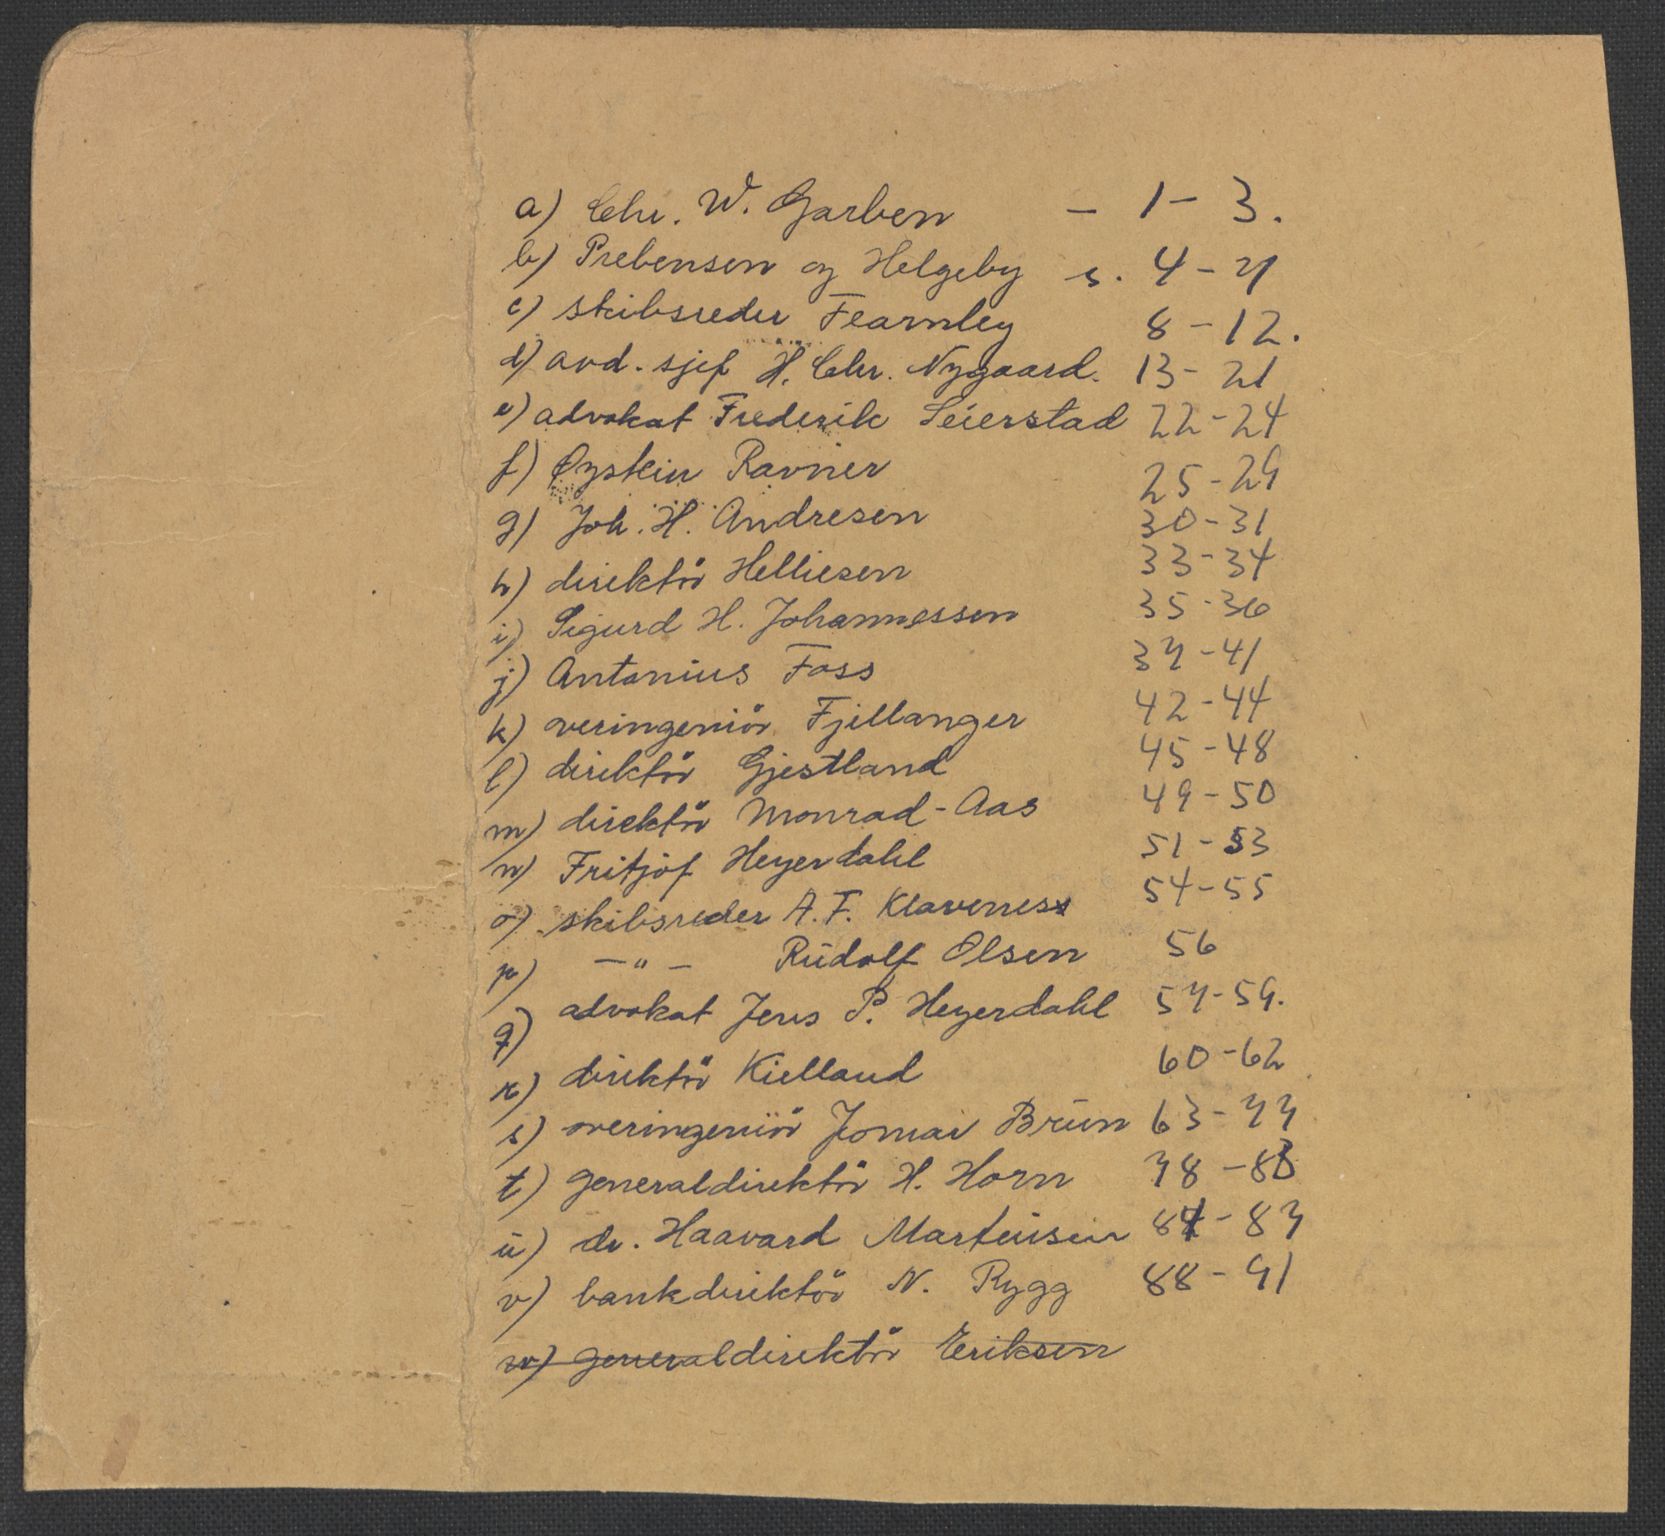 a) Chr. W. Garben - 1 - 3.
b) Prebensen og Helgeby s. 4 - 7
c) skibsreder Fearnley 8 - 12.
d) avd. sjef H. Chr. Nygaard. 13 - 21
e) advokat Frederik Seierstad 22 - 24
f) Øystein Ravner 25 - 29
g) Joh. H. Andresen 30 - 31
h) direktör Helliesen 33 - 34
i) Sigurd H. Johannessen 35 - 36
j) Antonius Foss 37 - 41
k) overingeniör Fjellanger 42 - 44
l) direktör Gjestland 45 - 48
m) direktör Monrad-Aas 49 - 50
n) Fritjof Heyerdahl 51 - 53
o) skibsreder A. F. Klaveness 54 - 55
p) - " - Rudolf Olsen 56
q) advokat Jens P. Heyerdahl 57 - 59.
r) direktör Kielland 60 - 62
s) overingeniör Jomar Brun 63 - 77
t) generaldirektör H. Horn 78 - 83
u) dr. Haavard Martinsen 84 - 87
v) bankdirektör N. Rygg 88 - 91
w) generaldirektör Eriksen